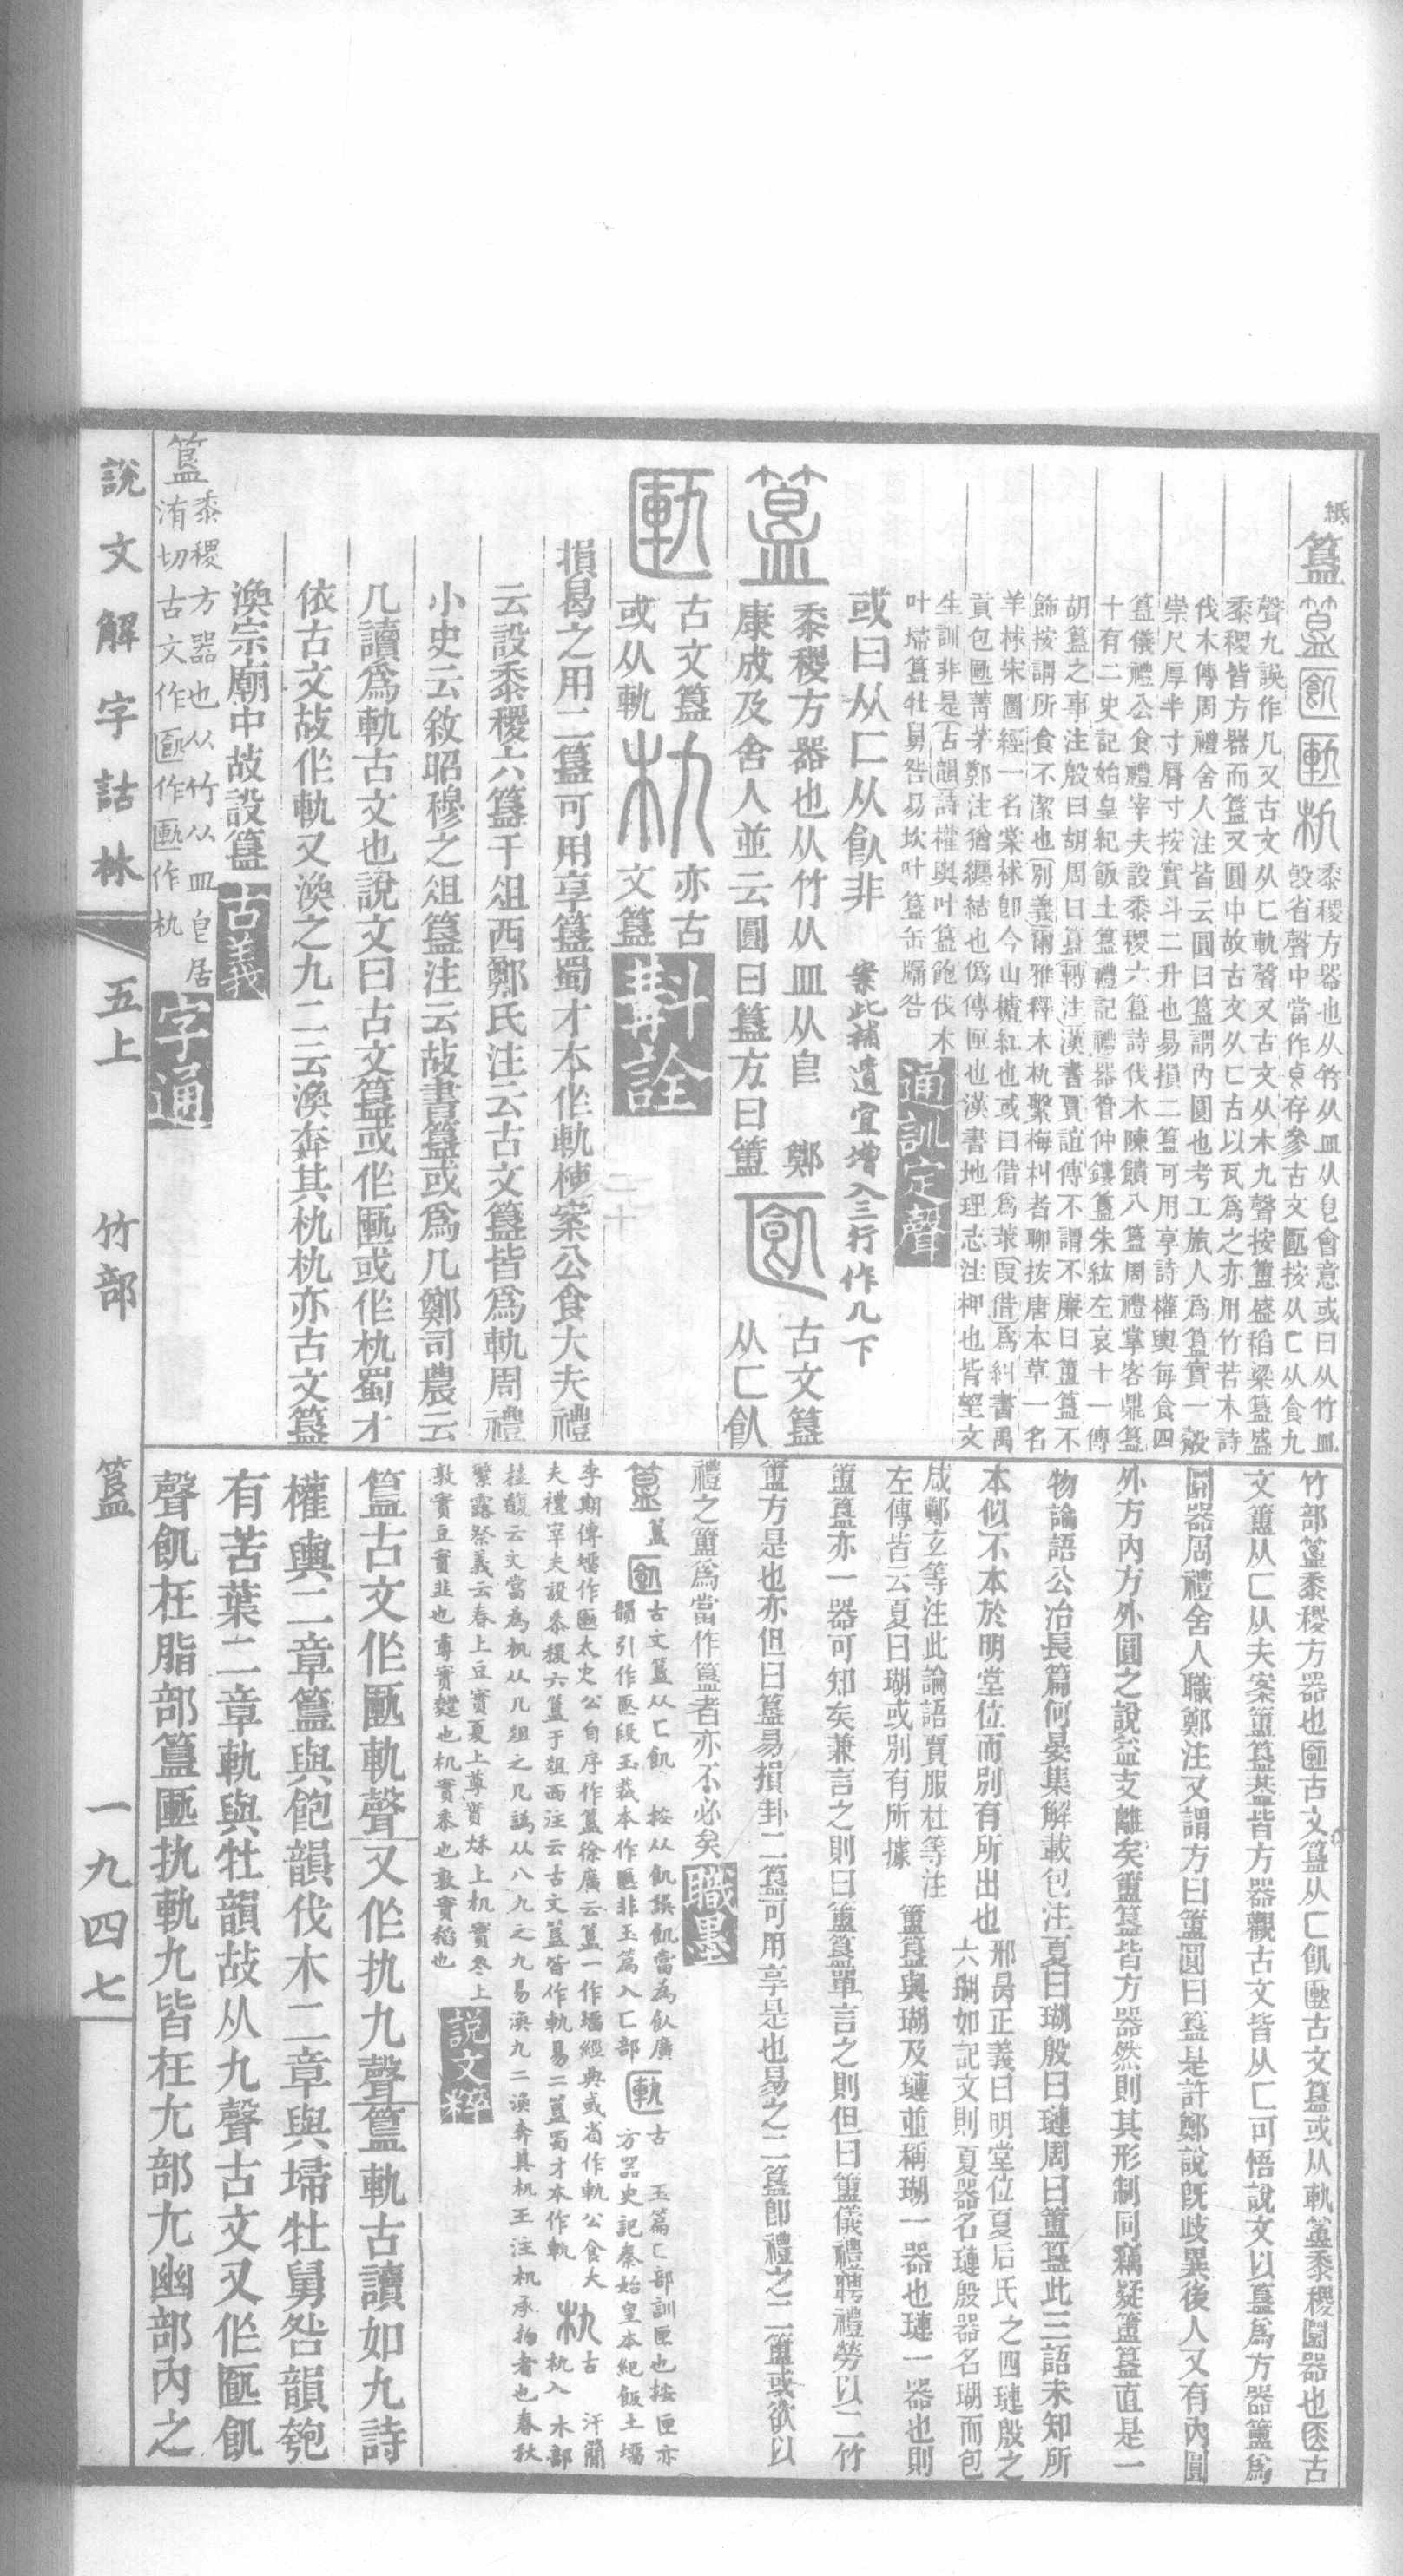 紙
簋 簋 𠥗 匭 朹 黍稷方器也从竹从皿从皀會意或曰从竹皿
㲃省聲中當作皃存參古文匭按从匚从食九
聲九誤作几又古文从匚軌聲又古文从木九聲按簠盛稻粱簋盛
黍稷皆方器而簋又圓中故古文从匚古以瓦爲之亦用竹若木詩
伐木傳周禮舍人注皆云圓曰簋謂內圓也考工旊人爲簋實一觳
崇尺厚半寸脣寸按實斗二升也易損二簋可用享詩權輿每食四
簋儀禮公食禮宰夫設黍稷六簋詩伐木陳饋八簋周禮掌客鼎簋
十有二史記始皇紀飯土簋禮記禮器管仲鏤簋朱紘左哀十一傳
胡簋之事注殷曰胡周曰簋轉注漢書賈誼傳不謂不廉曰簠簋不
飾按謂所食不潔也別義爾雅釋木朹檕梅朻者聊按唐本草一名
羊梂宋圖經一名棠梂卽今山樝紅也或曰借爲莍叚借爲糾書禹
貢包匭菁茅鄭注猶纒結也僞傳匣也漢書地理志注柙也皆望文
生訓非是古韻詩權輿叶簋飽伐木
叶埽簋牡舅咎易坎叶簋缶牖咎
通訓定聲
或曰从匚从飤非 案此補遺宜增入三行作九下
簋 黍稷方器也从竹从皿从皀 鄭
康成及舍人並云圓曰簋方曰簠
𠥗 古文簋
从匚飤
匭 古文簋
或从軌
朹 亦古
文簋
斠詮
損曷之用二簋可用享簋蜀才本作軌楝案公食大夫禮
云設黍稷六簋于俎西鄭氏注云古文簋皆爲軌周禮
小史云敘昭穆之俎簋注云故書簋或爲几鄭司農云
几讀爲軌古文也說文曰古文簋或作匭或作朹蜀才
依古文故作軌又渙之九二云渙奔其机朹亦古文簋
渙宗廟中故設簋
古義
簋 黍稷方器也从竹从皿皀居
洧切古文作𠥗作匭作朹
字通
竹部簋黍稷方器也𠥗古文簋从匚飢匭古文簋或从軌簠黍稷圜器也𠤰古
文簠从匚从夫案簠簋葢皆方器觀古文皆从匚可悟說文以簋爲方器簠爲
圜器周禮舍人職鄭注又謂方曰簠圓曰簋是許鄭說旣歧異後人又有內圓
外方內方外圓之說益支離矣簠簋皆方器然則其形制同竊疑簠簋直是一
物論語公冶長篇何晏集解載包注夏曰瑚殷曰璉周曰簠簋此三語未知所
本似不本於明堂位而別有所出也 邢昺正義曰明堂位夏后氏之四璉殷之
六瑚如記文則夏器名璉殷器名瑚而包
咸鄭玄等注此論語賈服杜等注
左傳皆云夏曰瑚或別有所據
簠簋與瑚及璉並稱瑚一器也璉一器也則
簠簋亦一器可知矣兼言之則曰簠簋單言之則但曰簠儀禮聘禮勞以二竹
簠方是也亦但曰簋易損卦二簋可用享是也易之二簋卽禮之二簠或欲以
禮之簠爲當作簋者亦不必矣
職墨
簋 簋 𠥗 古文簋从匚飢 按从飢誤飢當為飤廣
韻引作匭段玉裁本作匭非玉篇入匚部
匭 古 玉篇匚部訓匣也按匣亦
方器史記秦始皇本紀飯土塯
李斯傳塯作匭太史公自序作簋徐廣云簋一作塯經典或省作軌公食大
夫禮宰夫設黍稷六簋于俎西注云古文簋皆作軌易二簋蜀才本作軌
朹 古 汗簡
朹入木部
桂馥云文當為朹从几俎之几譌从八九之九易渙九二渙奔其机王注机承物者也春秋
繁露祭義云春上豆實夏上尊實秋上机實冬上
敦實豆實韭也尊實麷也机實黍也敦實稻也
說文粹
簋古文作匭軌聲又作朹九聲簋軌古讀如九詩
權輿二章簋與飽韻伐木二章與埽牡舅咎韻匏
有苦葉二章軌與牡韻故从九聲古文又作匭飢
聲飢在脂部簋匭朹軌九皆在尤部尤幽部內之
說文解字詁林 五上 竹部 簋 一九四七